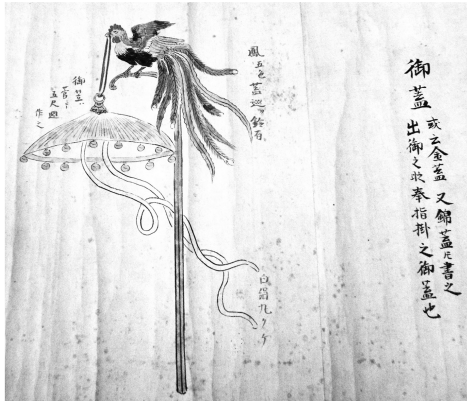 御蓋
或云金蓋又錦蓋片書之
出御之牧奉指掛之御蓋也
鳳五色蓋巡リ鈴有
御笠ハ
菅ニテ
五尺廻
作之
白絹九クケ